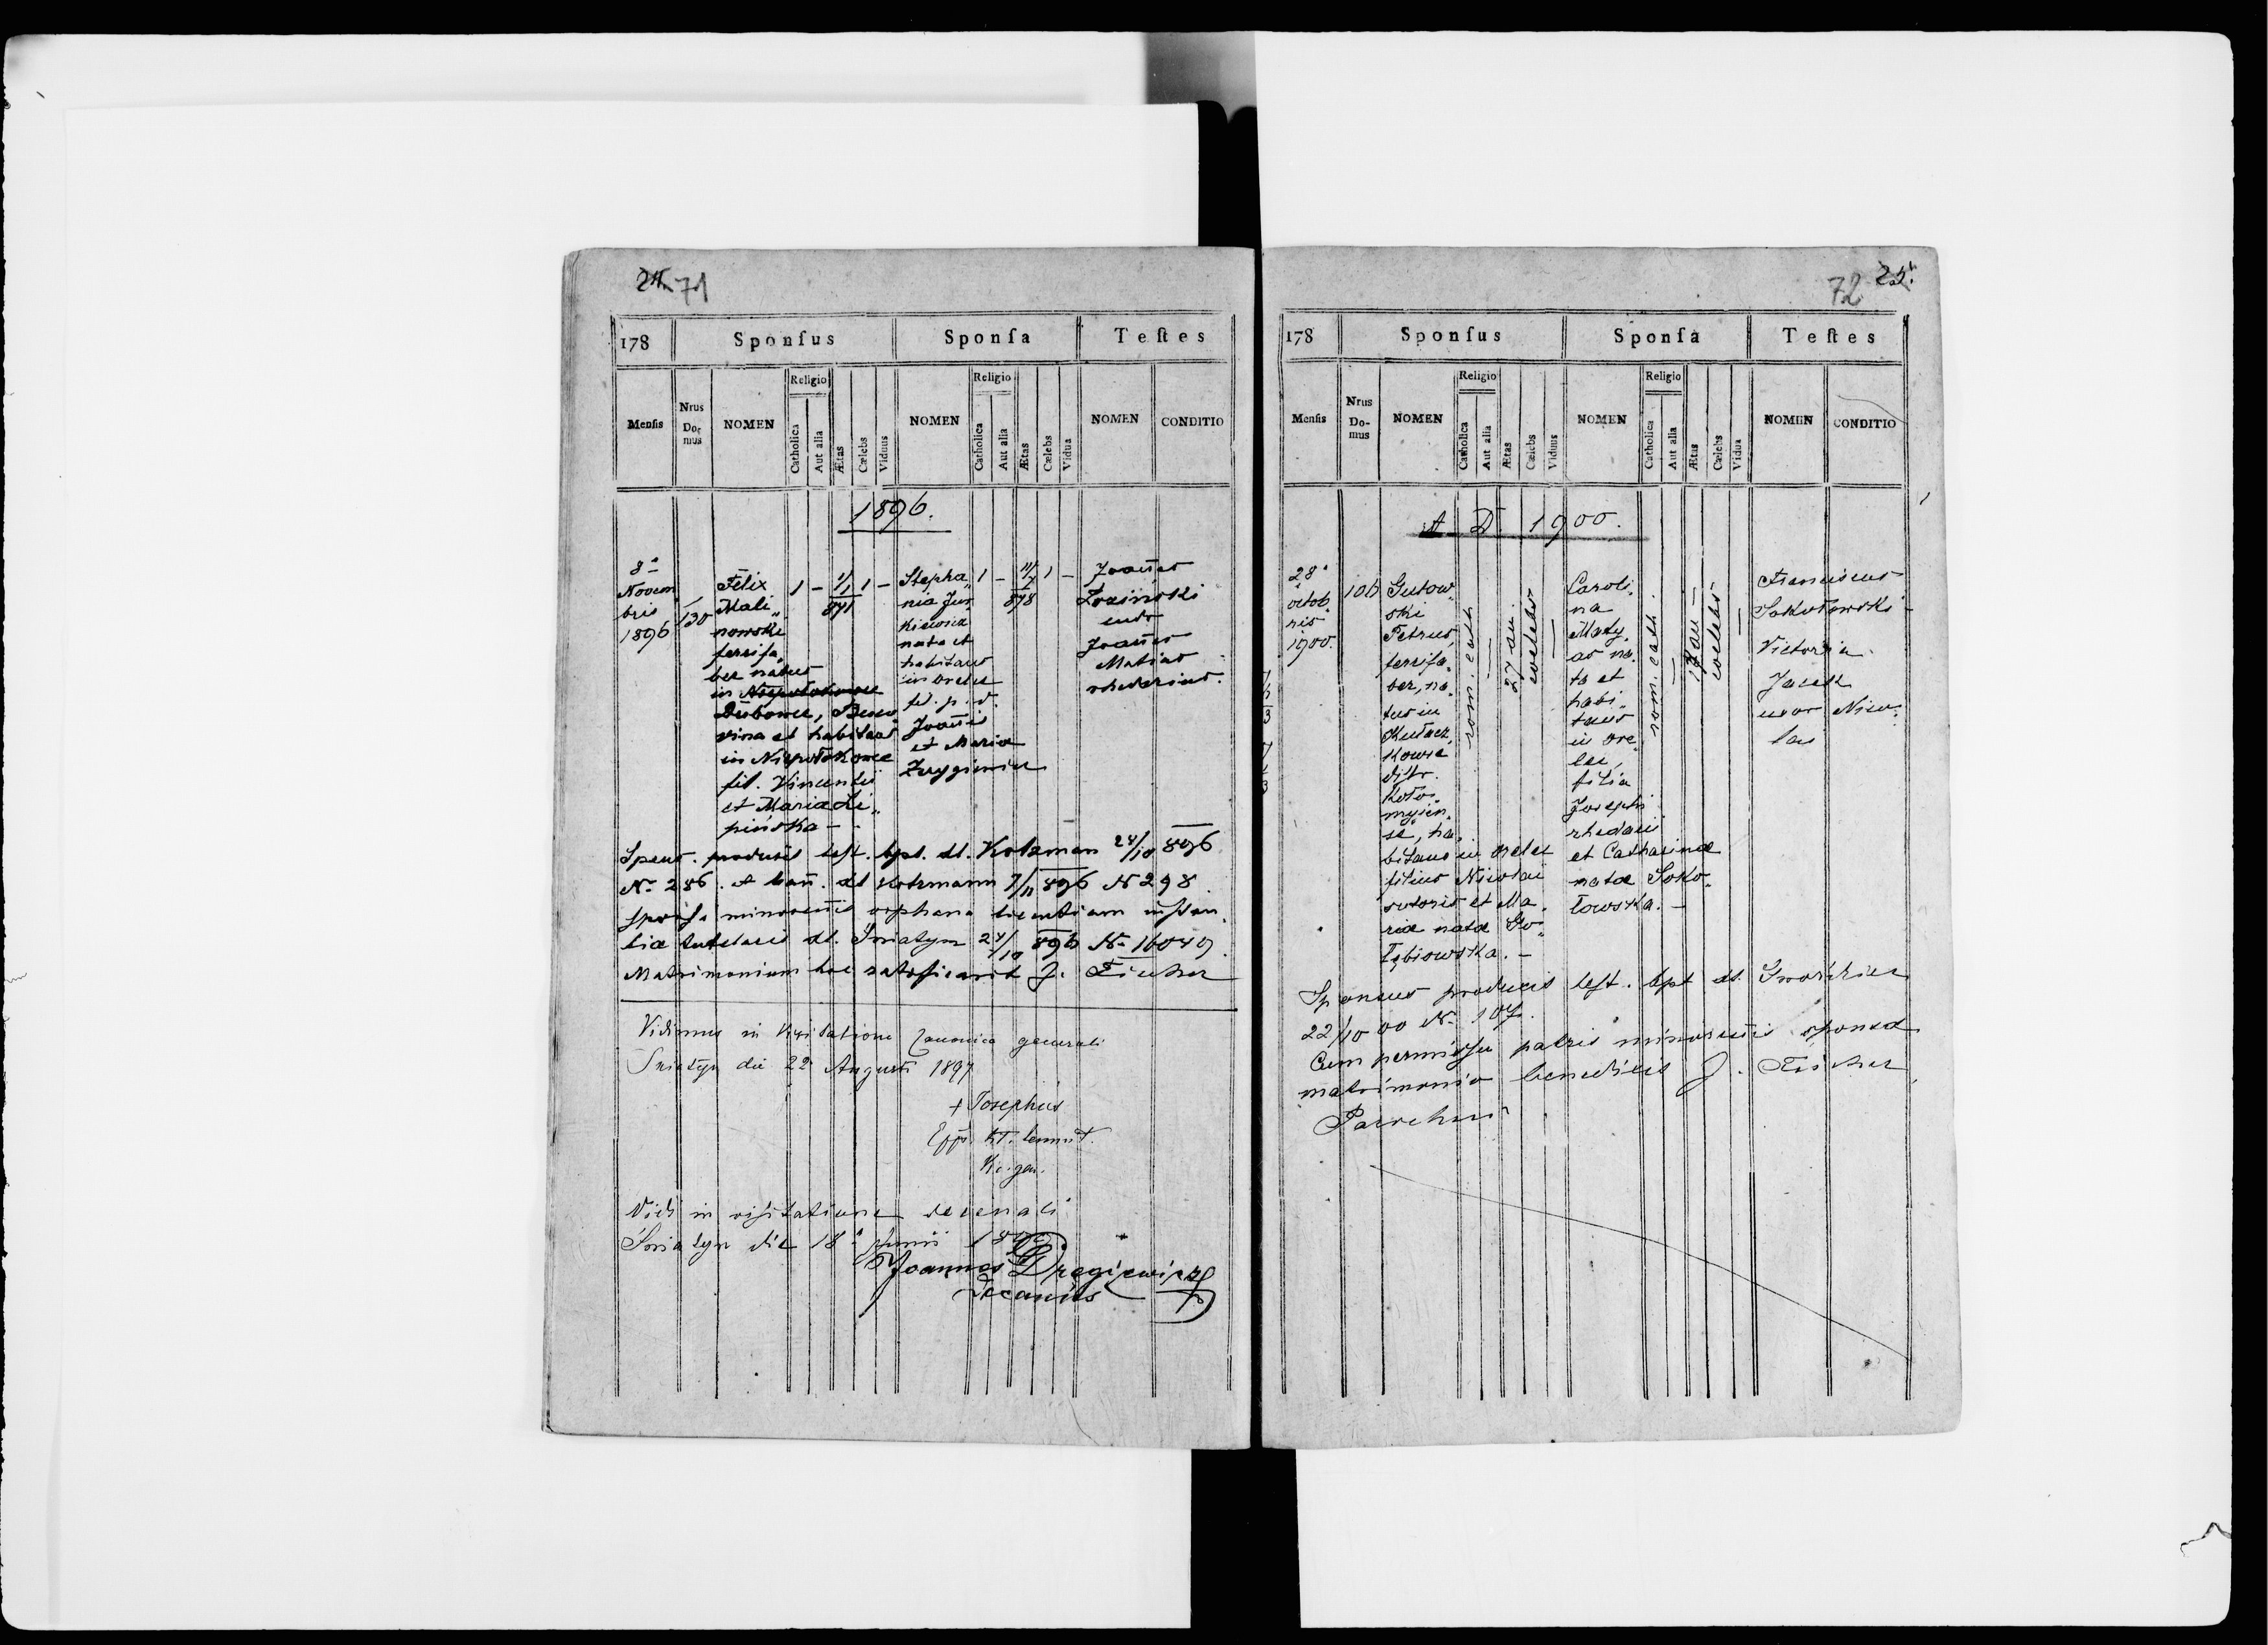 71
178 Sponſus Sponſa Teſtes
Menſis Nrus Domus NOMEN Religio Catholica Aut alia Ætas Cælebs Viduus NOMEN Religio Catholica Aut alia Ætas Cælebs Vidua NOMEN CONDITIO
1896.
8a
Novem
bris
1896
130
Felix
Mali„
nowski
ferrifa„
ber natus
in Niepołokowce
Dubowce, Buco
vina et habitans
in Niepołokowce
fil. Vincentii
et Maria Li„
pińska –
1 – 1/1 871 1 –
Stepha„
nia Jur
kiewicz
nata et
habitans
in Orelec
fil. p. d.
Joañis
et Maria
1 – 11/7 878 1 –
Joañes
Łoziński
Joañes
Matias
rhedarius.
Spons. produxit test. bpt. dt. Kotzman 24/10 896
No 286. et bañ. dt Kotzmann 7/11 896 N 298.
Sponsa minorenis orphana licentiam instan
tiæ tutelaris dt. Śniatyn 24/10 896 No 16049.
Matrimonium hoc ratificavit J. Fischer
Vidimus in Visitatione Canonica generali
Sniatyn die 22 Augusti 1897
+ Josephus
Vidi in visitatione decanali
Śniatyn die 18a Junii
Joannes Dręgiewicz
Decanus
72 25.
178 Sponſus Sponſa Teſtes
Menſis Nrus Domus NOMEN Religio Catholica Aut alia Ætas Cælebs Viduus NOMEN Religio Catholica Aut alia Ætas Cælebs Vidua NOMEN CONDITIO
A D 1900.
28a
octob.
ris
1900.
106
Gutow„
ski
Petrus,
ferrifa„
ber, na„
tus in
Kułacz„
kowce
distr.
Koło„
myien„
se, ha„
bitans in Orelec
filius Nicolai
sutoris et Ma„
riæ natæ Go„
łębiowska. –
rom. cath
27 an.
coelebs
Caroli„
na
Maty„
as na„
ta et
habi„
tans
in Ore„
lec,
filia
Josephi
rhedarii
et Catharinæ
natæ Soko„
łowska. –
rom. cath.
coelebs
Franciscus
Sokołowski –
Victoria
Jacek
uxor Nico„
lai
Sponsus producit test. bpt dt. Gwoździec
22/10 00 No 107.
Cum permissu patris minorenis sponsæ
matrimonio benedixit J. Fischer
Parochus